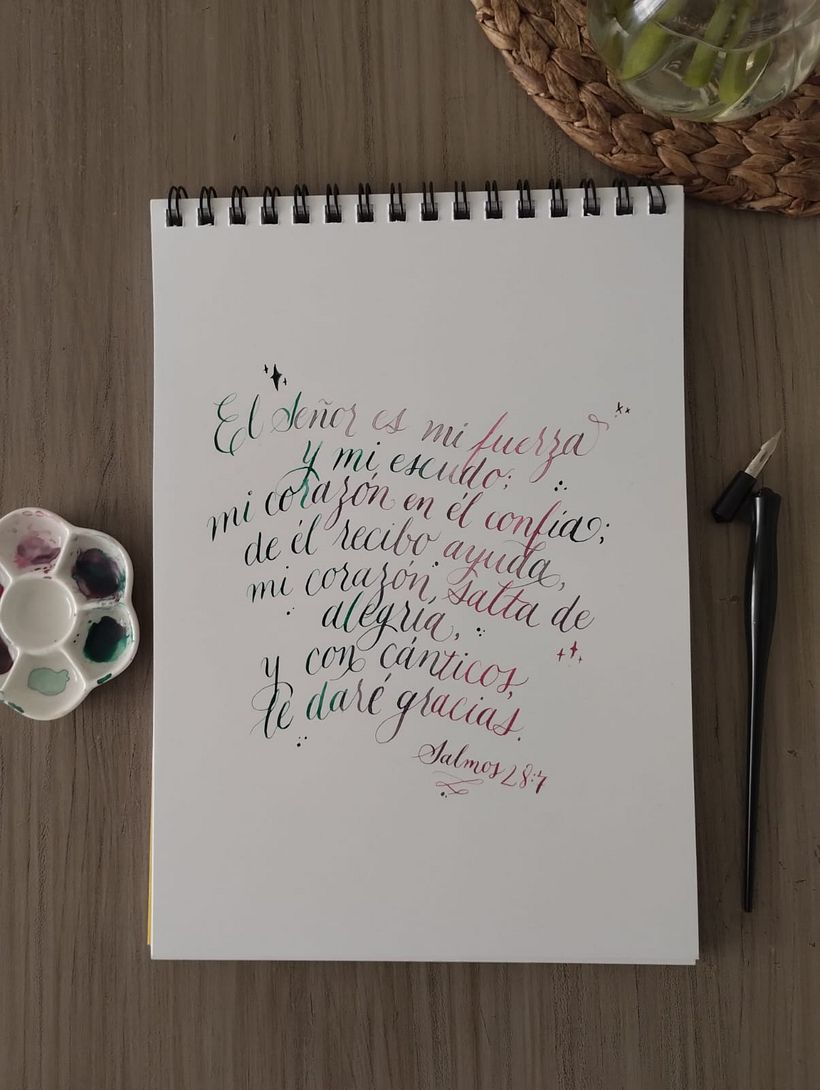 El Señor es mi fuerza
y mi escudo;
mi corazón en él confía;
de él recibo ayuda,
mi corazón salta de
alegría,
y con cánticos,
le daré gracias.
Salmos 28:7